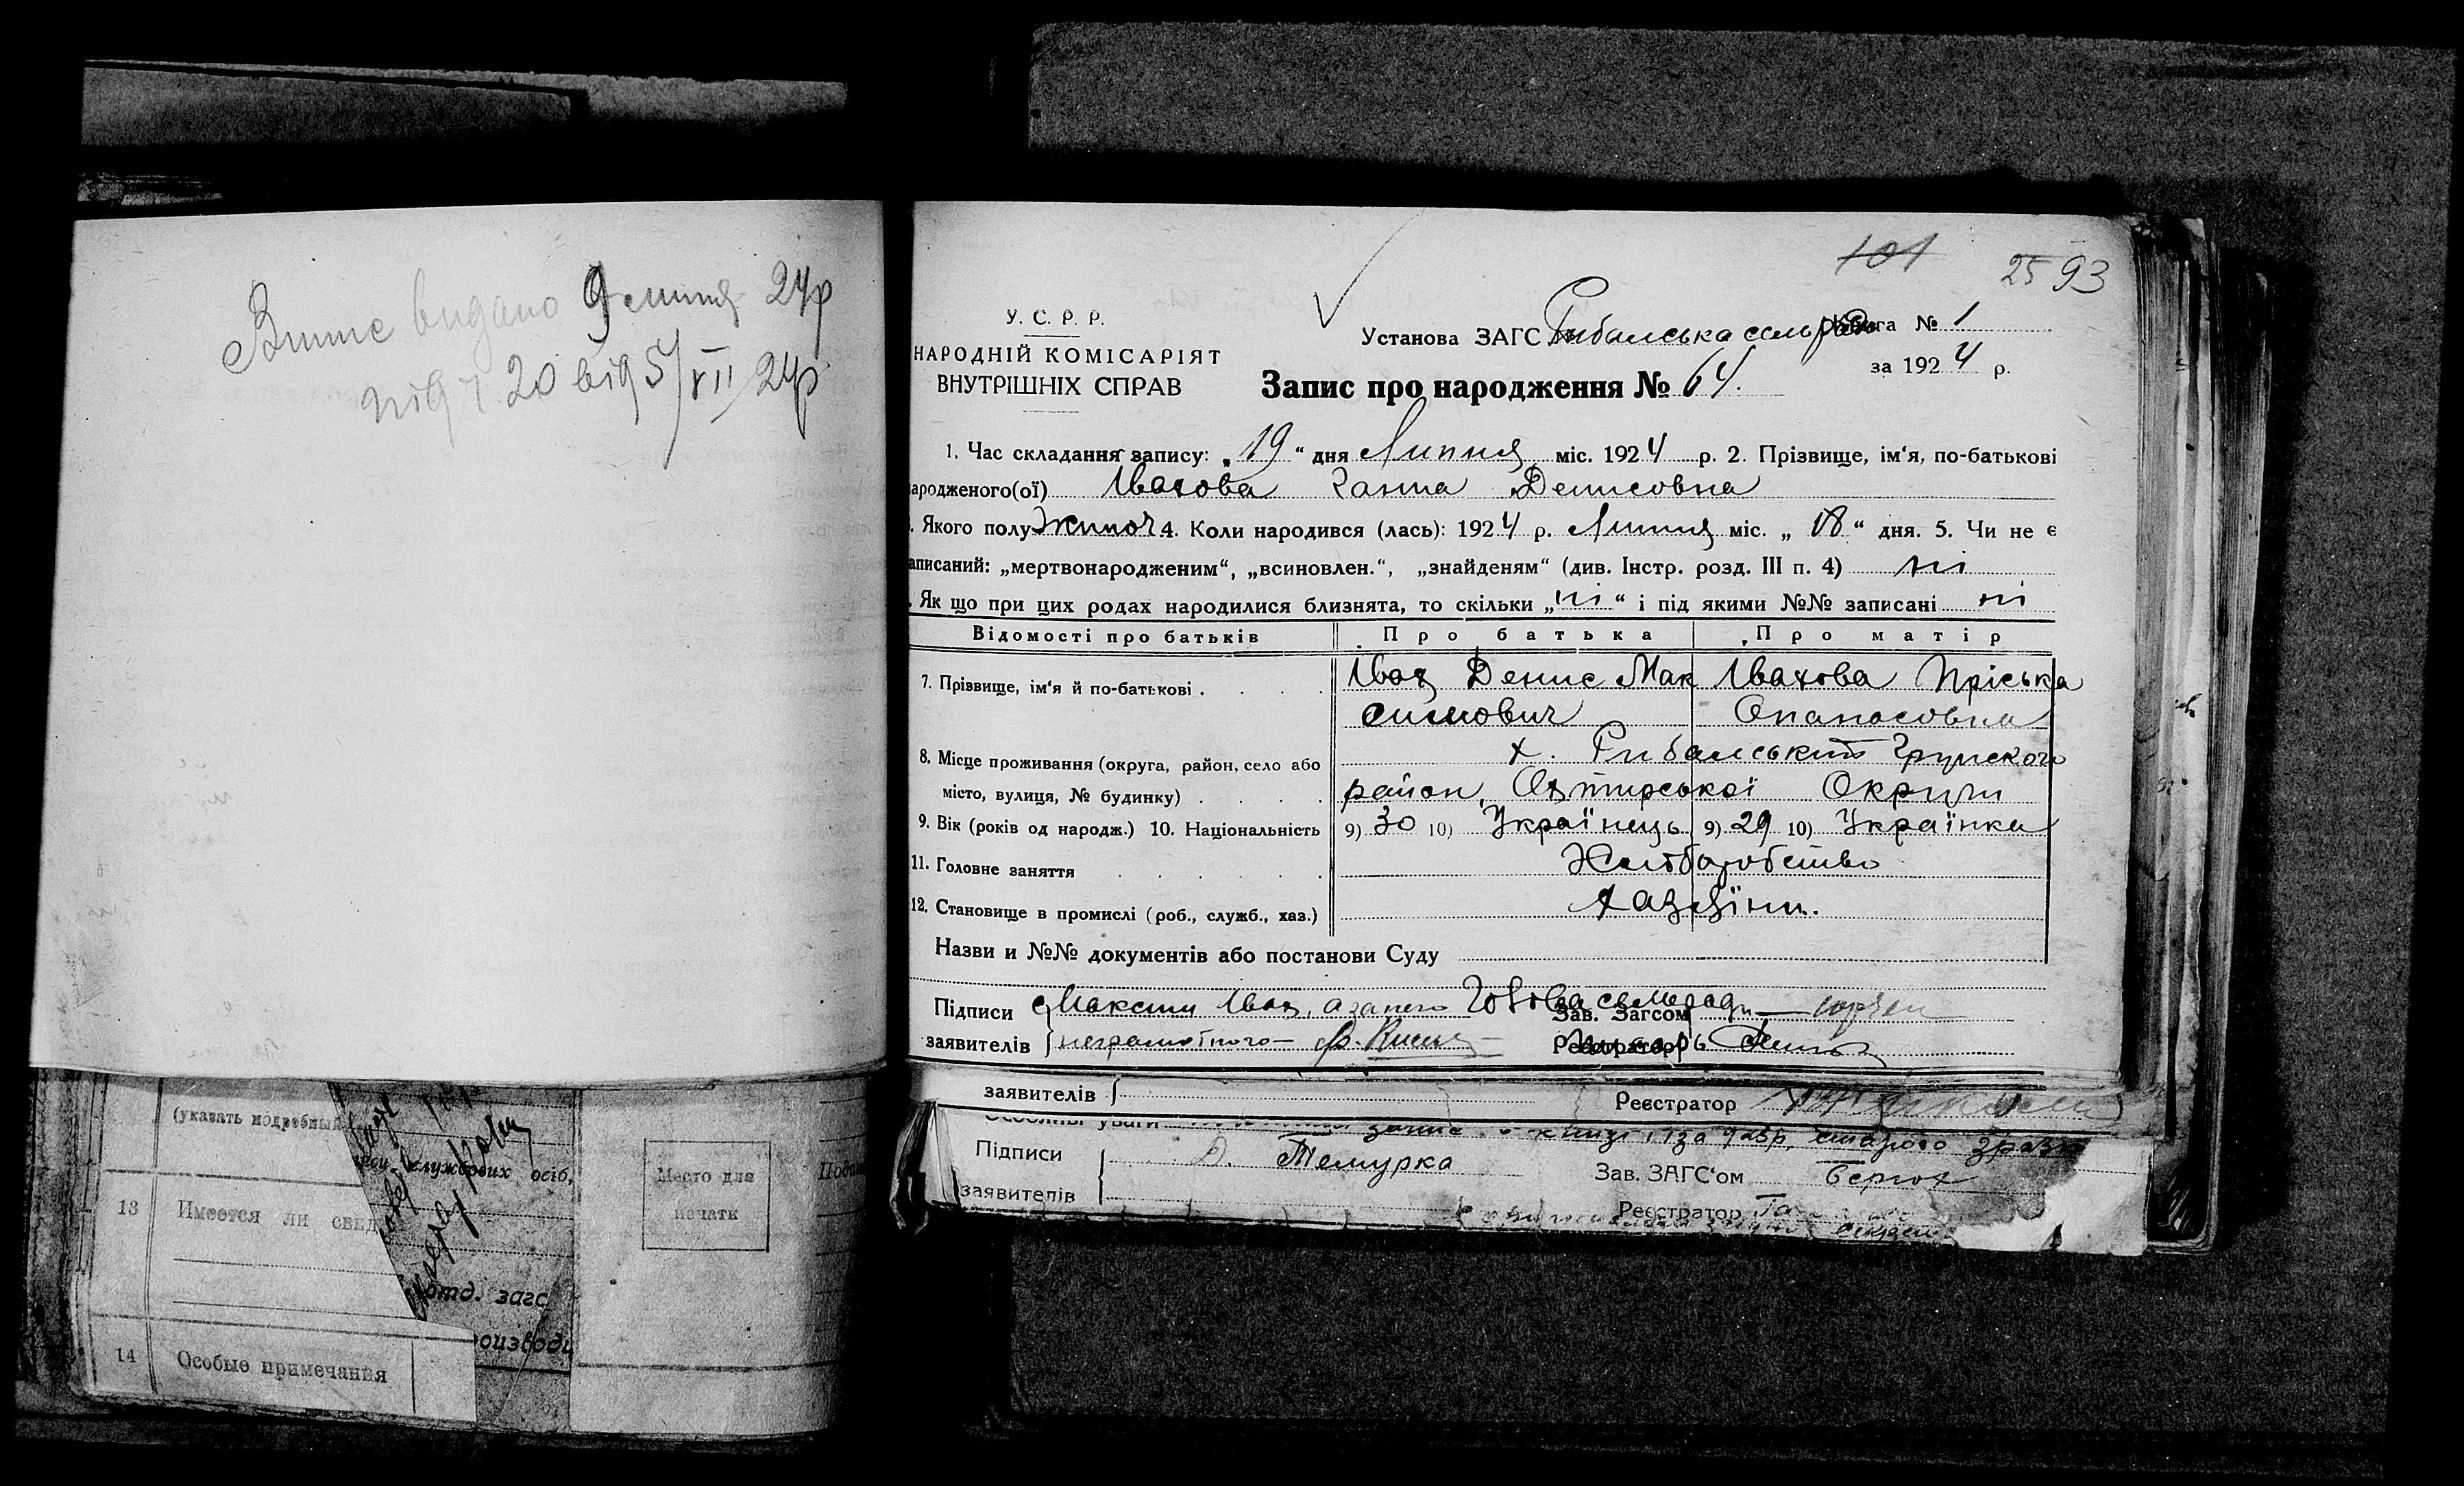 Випис видано 9 липня 24р
під № 20 від 5/VII 24р
101
25 93
У. С. Р. Р.
НАРОДНІЙ КОМІСАРІЯТ
ВНУТРІШНІХ СПРАВ
Установа ЗАГС Рибальська сельрада Книга № 1
за 1924 р.
Запис про народження № 64.
1. Час складання запису: „19“ дня Липня міс. 1924 р. 2. Прізвище, ім‘я, по-батькові
ародженого(ої) Івахова Ганна Денисовна
. Якого полу Жиноч 4. Коли народився (лась): 1924 р. Липня міс. „18“ дня. 5. Чи не є
аписаний: „мертвонародженим“, „всиновлен.“, „знайденям“ (див. Інстр. розд. III п. 4) ні
. Як що при цих родах народилися близнята, то скільки „ні“ і під якими №№ записані ні
Відомості про батьків Про батька Про матір
7. Прізвище, ім‘я й по-батькові . . . . Івах Денис Мак Івахова Пріська
симович Опанасовна
8. Місце проживання (округа, район, село або х. Рибальский Грунского
місто, вулиця, № будинку) . . . . район, Охтирської Округи
9. Вік (років од народж.) 10. Національність 9) 30 10) Українець 9) 29 10) Українка
11. Головне заняття Хліборобство
12. Становище в промислі (роб., служб., хаз.) хазяїни.
Назви и №№ документів або постанови Суду
Підписи Максим Івах, а за него Голова сельради Зав. Загсом
заявителів неграмотного Ф. Реєстратор
заявителів Реєстратор
Особливі уваги
Підписи Д. Темурка Зав. ЗАГС‘ом
заявителів Реєстратор
(указать подробный
службових осіб,
13 Имеется ли свид
отд. загс
оизводи
14 Особые примечания
Место для
печати